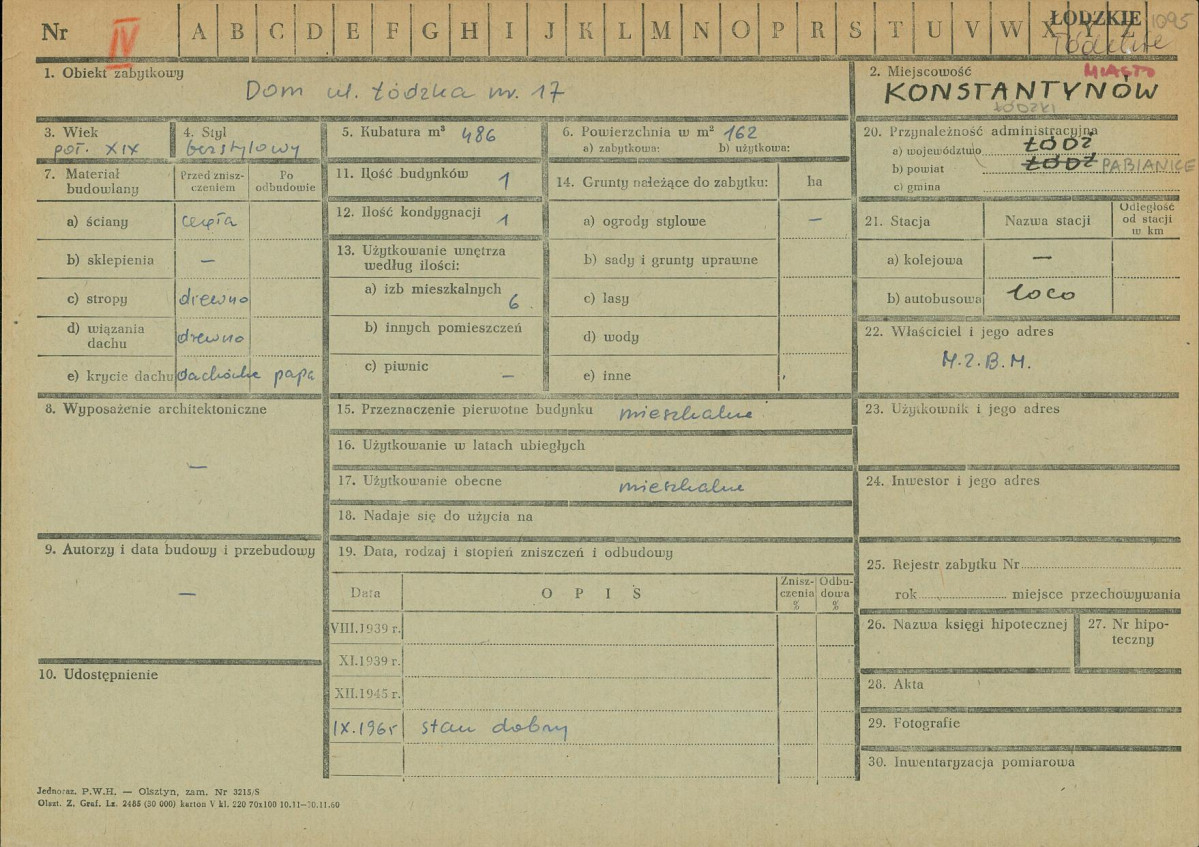 Nr IV A B C D E F G H I J K L M N O P R S T U V W X Y Z ŁÓDZKIE 1095
1. Obiekt zabytkowy
Dom ul. Łódzka nr. 17
2. Miejscowość MIASTO
KONSTANTYNÓW
ŁÓDZKI
3. Wiek
poł. XIX
4. Styl
bezstylowy
5. Kubatura m³ 486
6. Powierzchnia w m² 162
a) zabytkowa: b) użytkowa:
20. Przynależność administracyjna
a) województwo ŁÓDŹ
b) powiat ŁÓDŹ PABIANICE
c) gmina
7. Materiał budowlany
Przed znisz-
czeniem
Po
odbudowie
a) ściany cegła
b) sklepienia —
c) stropy drewno
d) wiązania
dachu drewno
e) krycie dachu dachówka papa
11. Ilość budynków 1
12. Ilość kondygnacji 1
13. Użytkowanie wnętrza
według ilości:
a) izb mieszkalnych 6
b) innych pomieszczeń
c) piwnic —
14. Grunty należące do zabytku: ha
a) ogrody stylowe —
b) sady i grunty uprawne
c) lasy
d) wody
e) inne
21. Stacja Nazwa stacji
Odległość
od stacji
w km
a) kolejowa —
b) autobusowa loco
22. Właściciel i jego adres
M.Z.B.M.
8. Wyposażenie architektoniczne
—
15. Przeznaczenie pierwotne budynku mieszkalne
16. Użytkowanie w latach ubiegłych
17. Użytkowanie obecne mieszkalne
18. Nadaje się do użycia na
23. Użytkownik i jego adres
24. Inwestor i jego adres
9. Autorzy i data budowy i przebudowy
—
10. Udostępnienie
19. Data, rodzaj i stopień zniszczeń i odbudowy
Data OPIS
Znisz-
czenia
%
Odbu-
dowa
%
VIII.1939 r.
XI.1939 r.
XII.1945 r.
IX.1965 stan dobry
25. Rejestr zabytku Nr
rok miejsce przechowywania
26. Nazwa księgi hipotecznej
27. Nr hipo-
teczny
28. Akta
29. Fotografie
30. Inwentaryzacja pomiarowa
Jednoraz. P.W.H. — Olsztyn, zam. Nr 3215/S
Olszt. Z. Graf. Lz. 2485 (30 000) karton V kl. 220 70x100 10.11—30.11.60